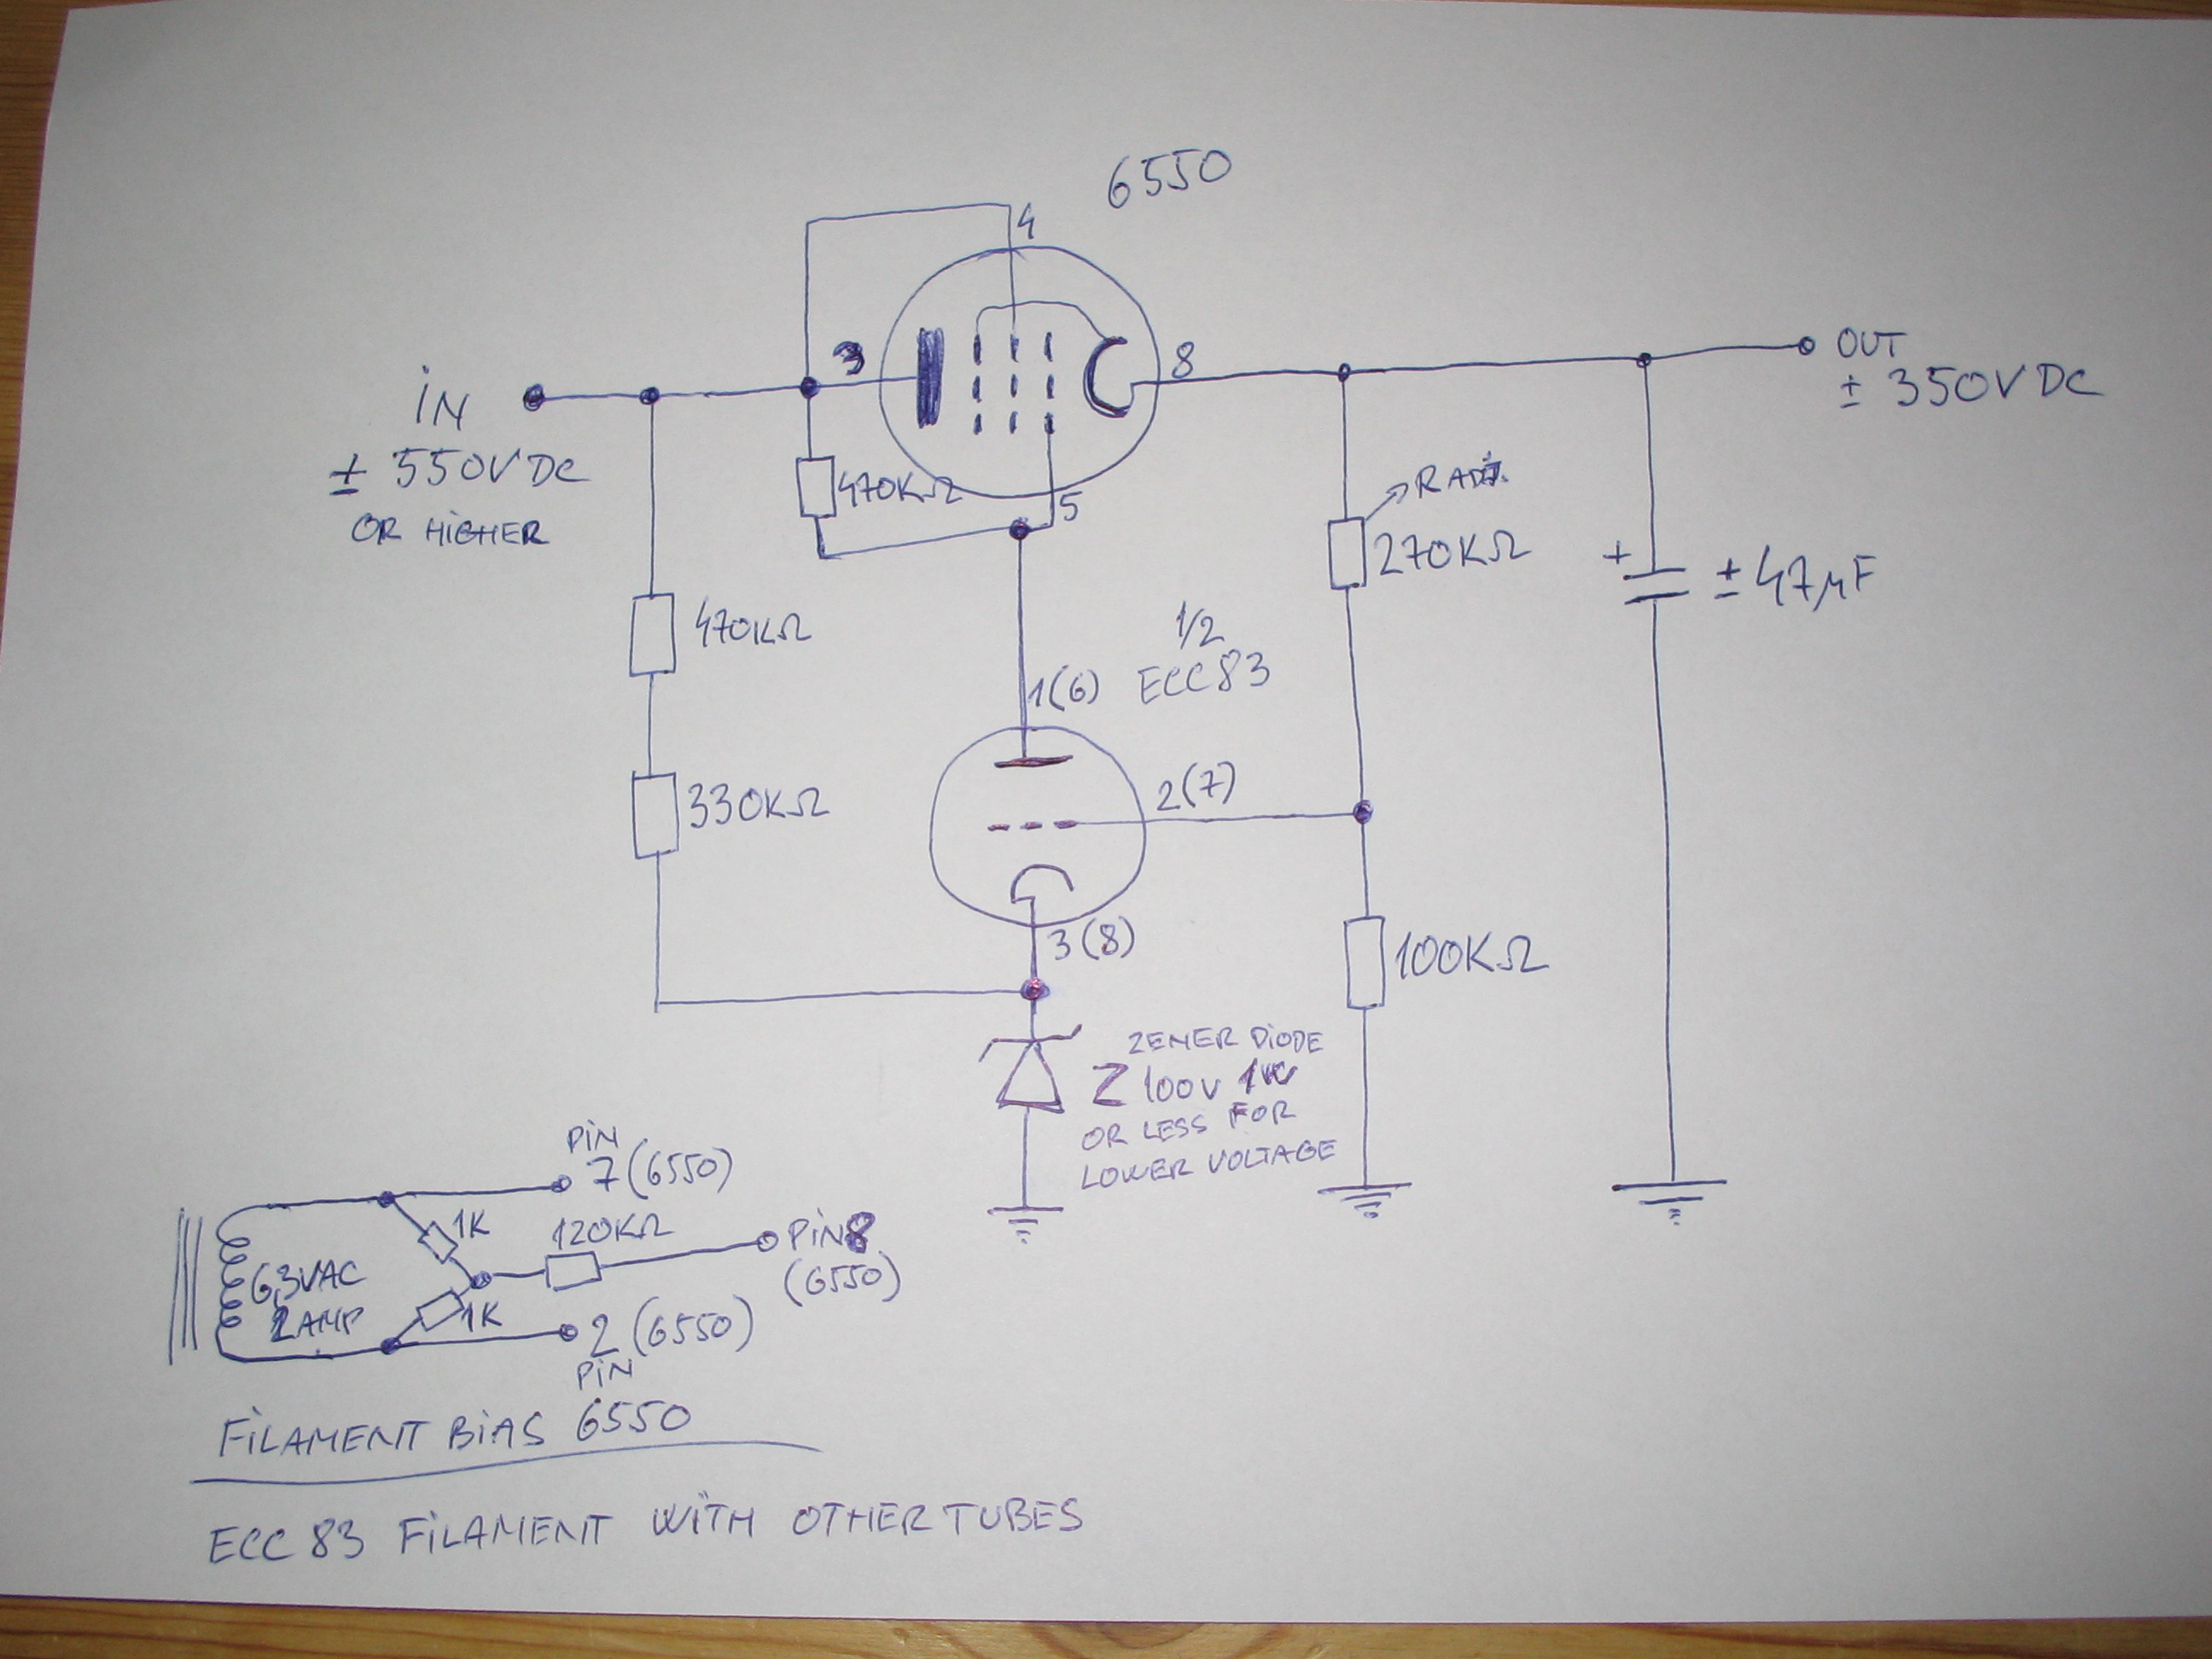 6550
4
3
8
iN
± 550V DC
OR HiGHER
OUT
± 350V DC
470KΩ
5
R ADJ.
270KΩ
+
± 47µF
470KΩ
1/2
ECC83
1(6)
2(7)
330KΩ
3(8)
100KΩ
ZENER DiODE
Z 100V 1W
OR LESS FOR
LOWER VOLTAGE
PiN
7 (6550)
1K
120KΩ
PiN8
(6550)
6,3VAC
2AMP
1K
2 (6550)
PiN
FiLAMENT BiAS 6550
ECC 83 FiLAMENT WiTH OTHER TUBES